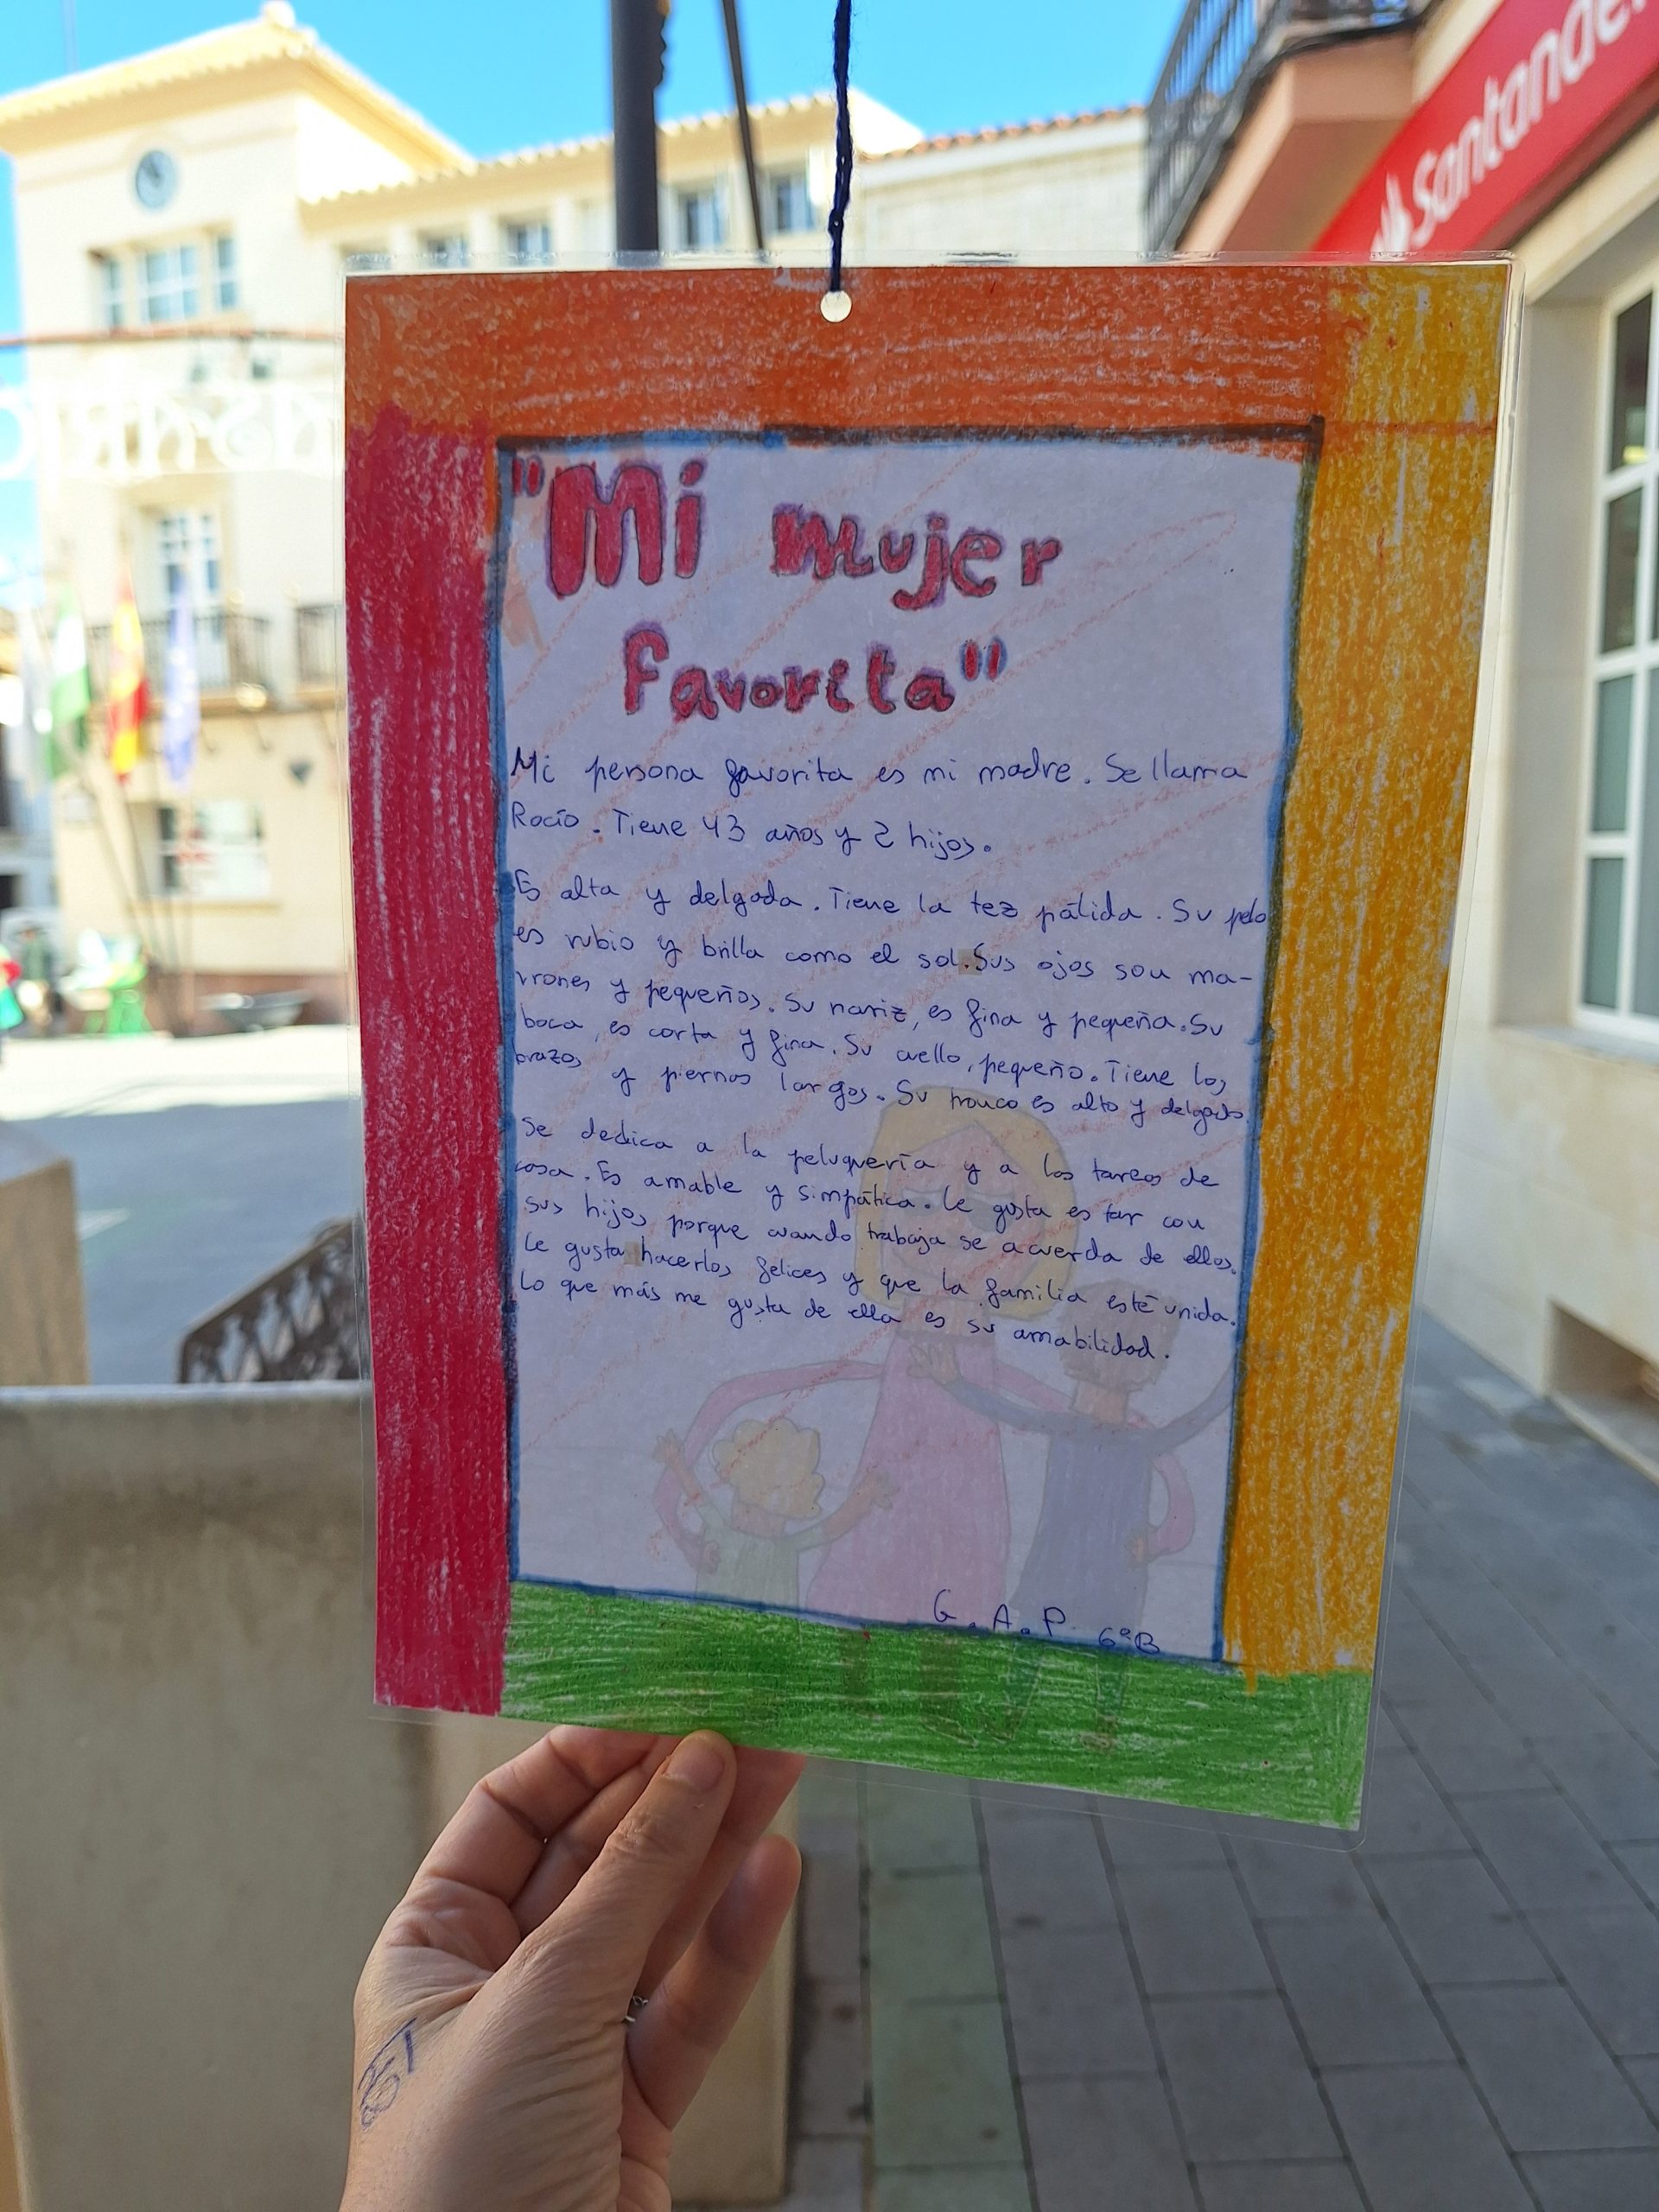 Santander
"Mi mujer
favorita"
Mi persona favorita es mi madre. Se llama
Rocío. Tiene 43 años y 2 hijos.
Es alta y delgada. Tiene la tez pálida. Su pelo
es rubio y brilla como el sol. Sus ojos son ma-
rrones y pequeños. Su nariz, es fina y pequeña. Su
boca, es corta y fina. Su cuello, pequeño. Tiene los
brazos y piernas largos. Su tronco es alto y delgado.
Se dedica a la peluquería y a las tareas de
casa. Es amable y simpática. Le gusta estar con
sus hijos porque cuando trabaja se acuerda de ellos.
Le gusta hacerlos felices y que la familia esté unida.
Lo que más me gusta de ella es su amabilidad.
G.A.P. 6ºB